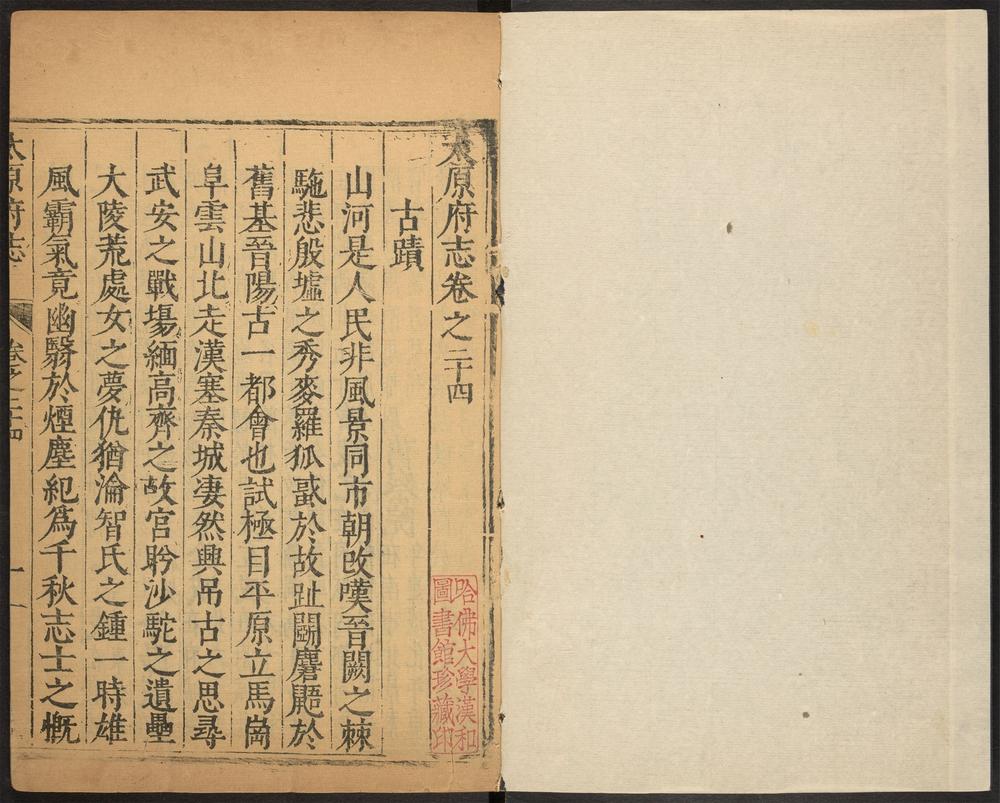 太原府志卷之二十四
古蹟
山河是人民非風景同市朝改嘆晉闕之棘
駞悲殷墟之秀麥羅狐鼪於故趾鬭麏鼯於
舊基晉陽古一都會也試極目平原立馬崗
阜雲山北走漢塞秦城凄然興吊古之思尋
武安之戰場緬高齊之故宮盻沙駝之遺壘
大陵荒處女之夢仇猶淪智氏之鍾一時雄
風霸氣竟幽翳於煙塵紀爲千秋志士之慨
太原府志
卷之二十四
一
哈佛大學漢和
圖書館珍藏印